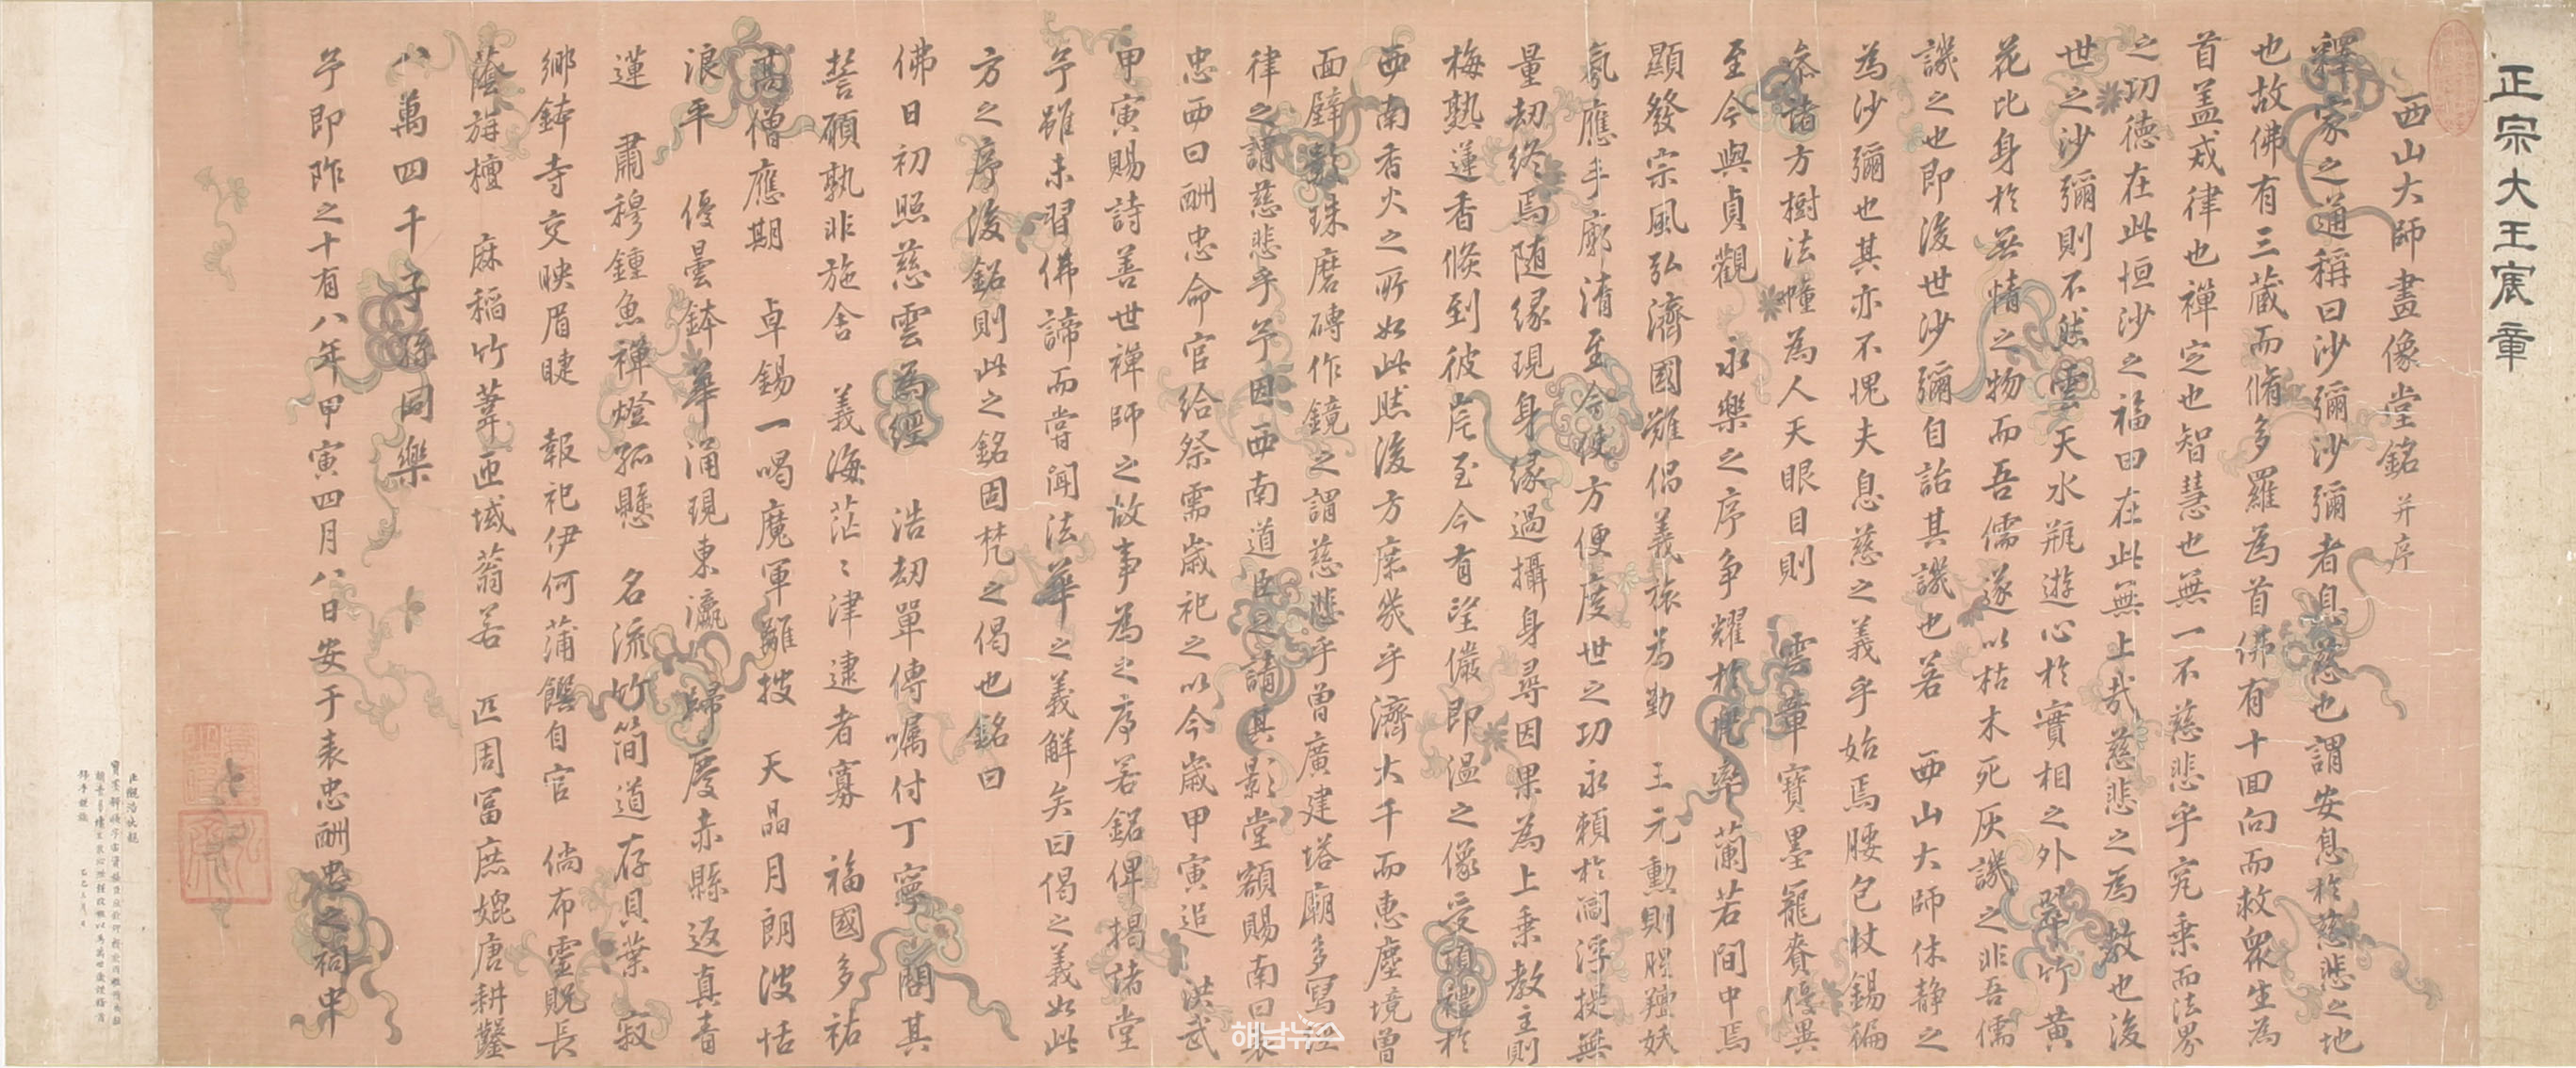 正宗大王宸章
西山大師畫像堂銘 并序
釋家之通稱曰沙彌沙彌者息慈也謂安息於慈悲之地
也故佛有三藏而脩多羅為首佛有十回向而救衆生為
首盖戒律也禪定也智慧也無一不慈悲乎究乘而法界
之功德在此恒沙之福田在此無上哉慈悲之為教也後
世之沙彌則不然雲天水瓶遊心於實相之外翠竹黃
花比身於無情之物而吾儒遂以枯木死灰譏之非吾儒
譏之也即後世沙彌自詒其譏也若 西山大師休静之
為沙彌也其亦不愧夫息慈之義乎始焉腰包杖錫徧
叅諸方樹法幢為人天眼目則 雲章寶墨寵賚優異
至今與貞觀 永樂之序争耀於 率蘭若間中焉
顯發宗風弘濟國難倡義旅為勤 王元勳則腥羶妖
氛應手廓清至今使方便度世之功永賴於閻浮提無
量劫終焉随緣現身緣過攝身尋因果為上乘教主則
梅熟蓮香倏到彼岸至今有望儼即溫之像受頂禮於
西南香火之所如此然後方庶幾乎濟大千而惠塵境曾
面壁數珠磨磚作鏡之謂慈悲乎曾廣建塔廟多寫經
律之謂慈悲乎予因西南道臣之請其影堂額賜南曰表
忠西曰酬忠命官給祭需歲祀之以今歲甲寅追 洪武
甲寅賜詩善世禪師之故事為之序若銘俾揭諸堂
予雖未習佛諦而嘗聞法華之義解矣曰偈之義如此
方之序後銘則此之銘固梵之偈也銘曰
佛日初照慈雲為經 浩劫單傳嘱付丁寧 闡其
誓願孰非施舍 義海茫〻津逮者寡 福國多祐
高僧應期 卓錫一喝魔軍離披 天晶月朗波恬
浪平 優曇鉢華涌現東瀛 歸慶赤縣返真青
蓮 肅穆鍾魚禪燈孤懸 名流竹簡道存貝葉 寂
鄉鉢寺交映眉睫 報祀伊何蒲饌自官 倘布靈貺長
蔭旃檀 麻稻竹葦匝域蓊若 匹周富庶媲唐耕鑿
八萬四千子孫同樂
予即阼之十有八年甲寅四月八日安于表忠酬忠之祠中
해남뉴스